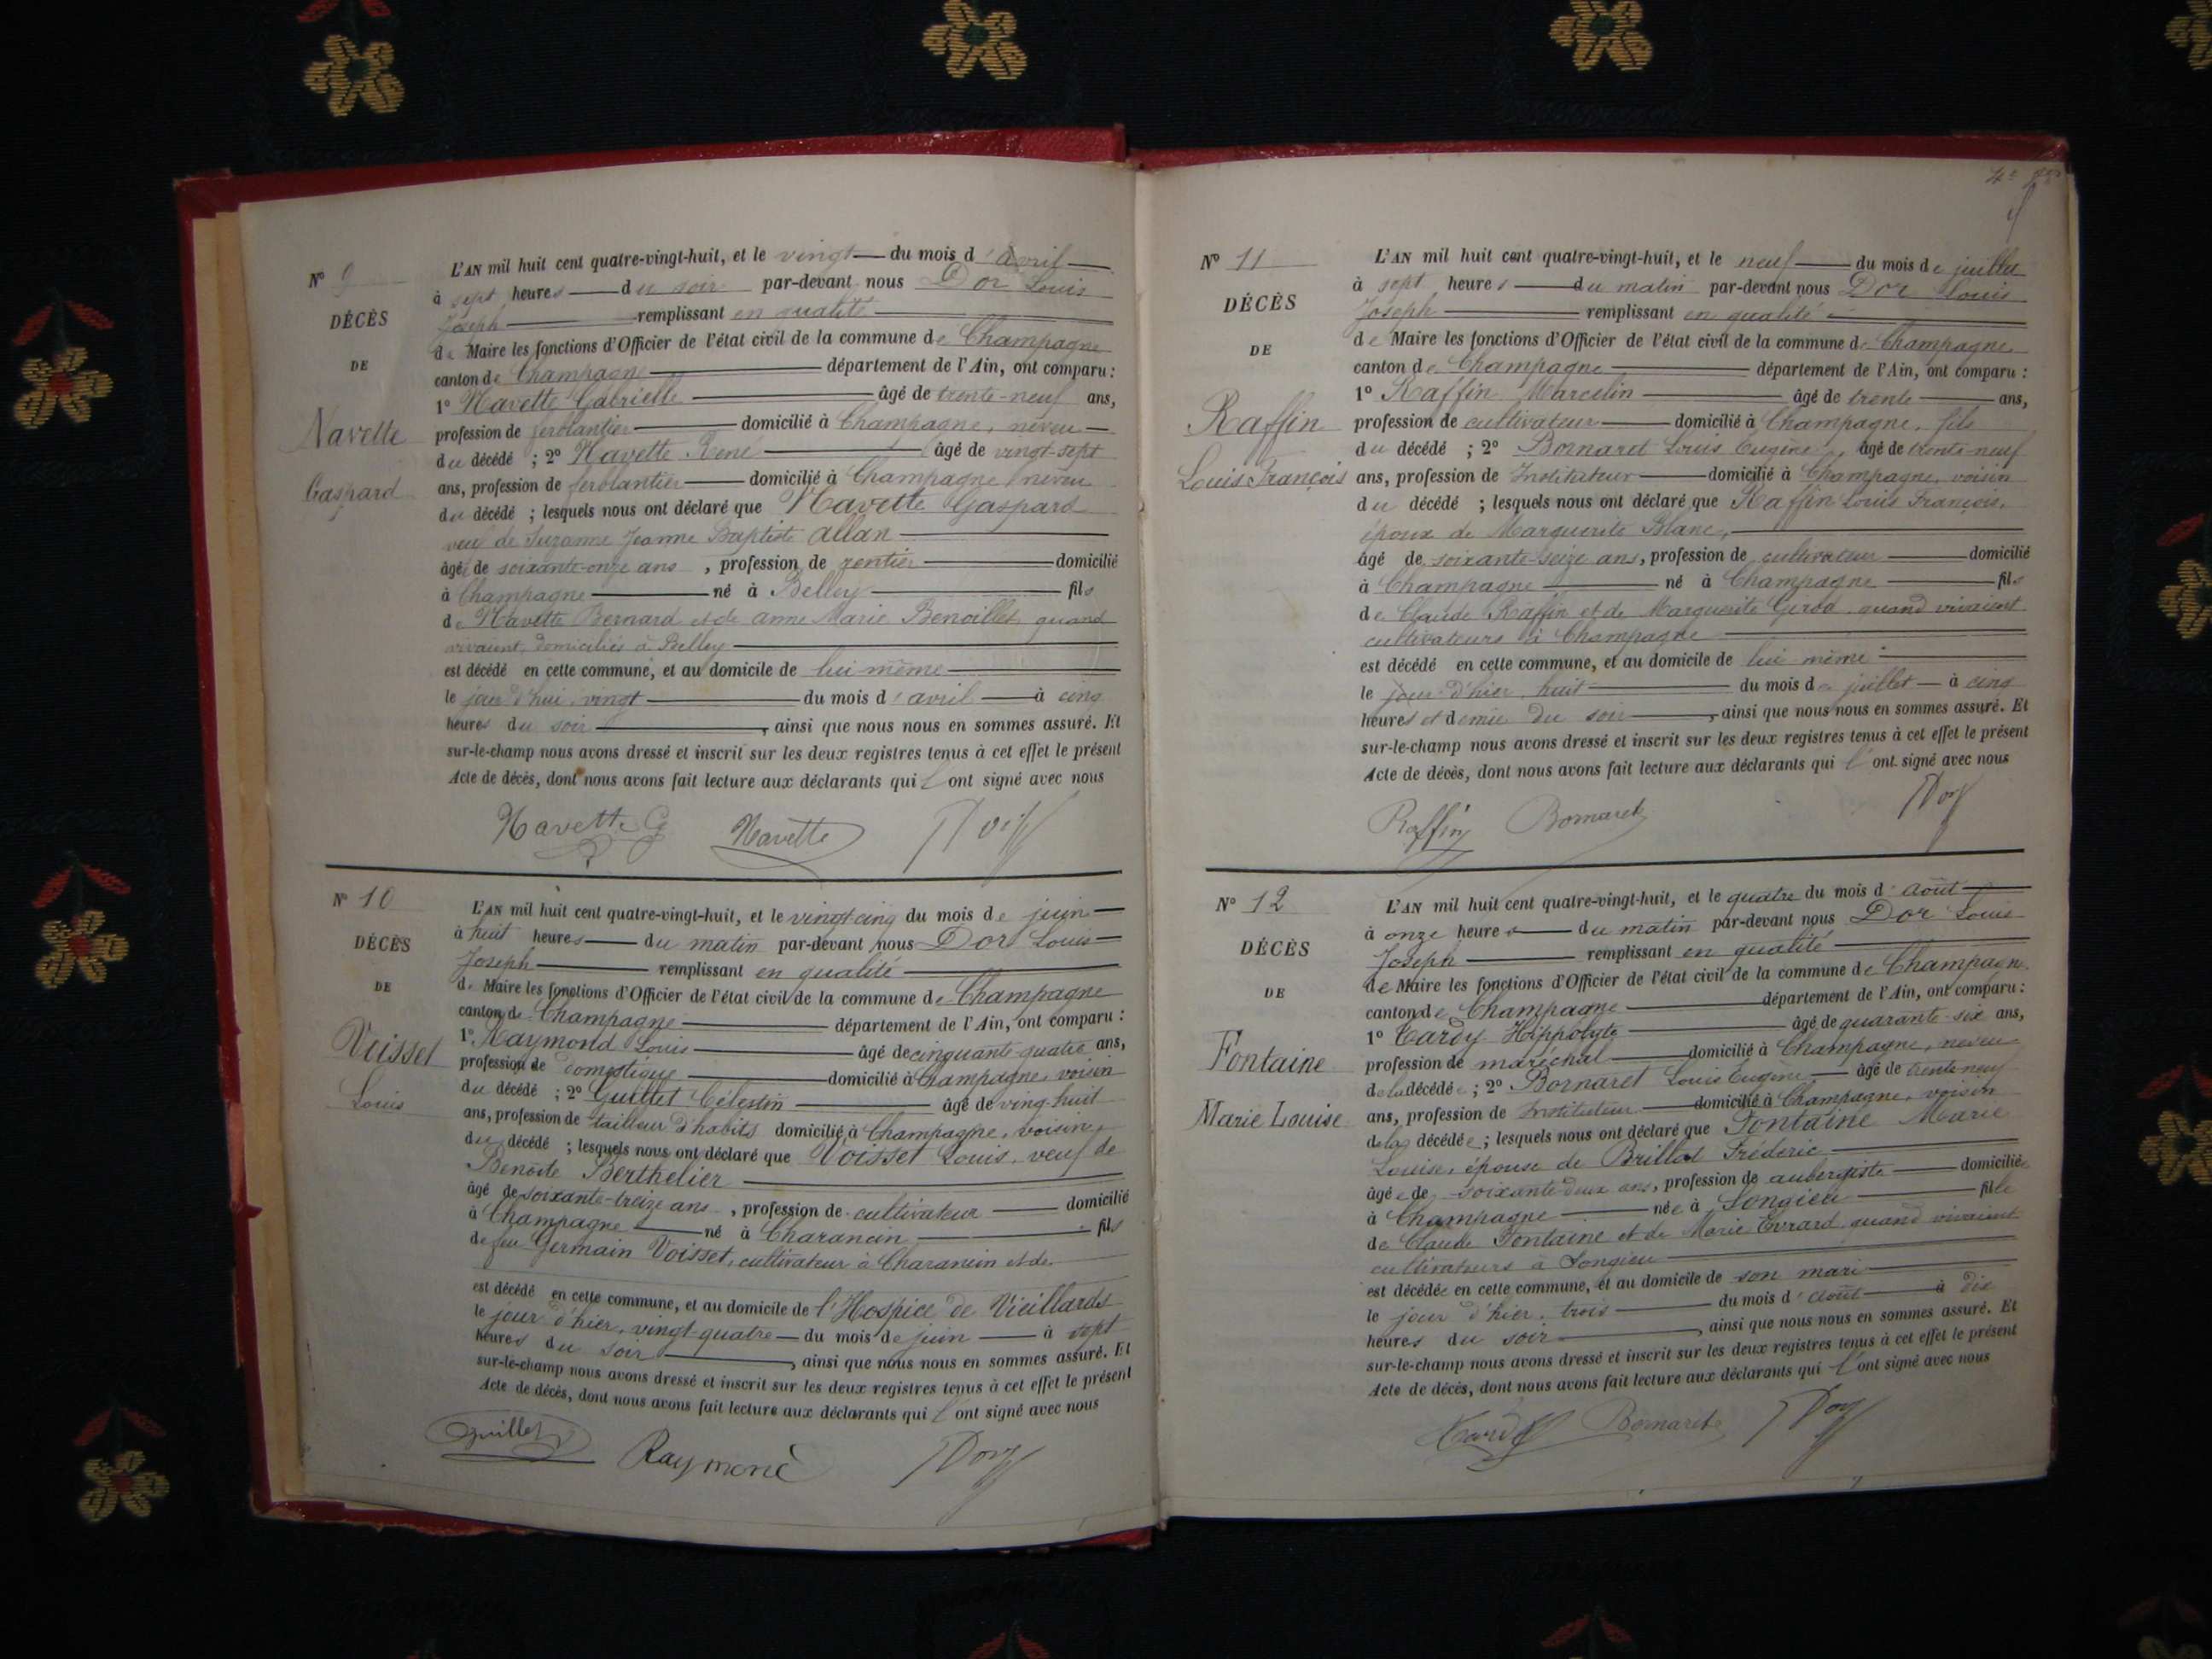 N° 9
DÉCÈS
DE
Navette
Gaspard
L'AN mil huit cent quatre-vingt-huit, et le vingt du mois d'avril
à sept heures du soir par-devant nous Dor Louis
Joseph remplissant en qualité
de Maire les fonctions d'Officier de l'état civil de la commune de Champagne
canton de Champagne département de l'Ain, ont comparu :
1° Navette Gabrielle âgé de trente-neuf ans,
profession de ferblantier domicilié à Champagne, neveu
du décédé ; 2° Navette René âgé de vingt-sept
ans, profession de ferblantier domicilié à Champagne neveu
du décédé ; lesquels nous ont déclaré que Navette Gaspard
veuf de Suzanne Jeanne Baptiste Allan
âgé de soixante-onze ans , profession de rentier domicilié
à Champagne né à Belley fils
de Navette Bernard et de anne Marie Benoillet quand
vivaient domiciliés à Belley
est décédé en cette commune, et au domicile de lui même
le jour d'hui vingt du mois d'avril à cinq
heures du soir , ainsi que nous nous en sommes assuré. Et
sur-le-champ nous avons dressé et inscrit sur les deux registres tenus à cet effet le présent
Acte de décès, dont nous avons fait lecture aux déclarants qui l'ont signé avec nous
Navette G Navette Dor
N° 10
DÉCÈS
DE
Voisset
Louis
L'AN mil huit cent quatre-vingt-huit, et le vingt cinq du mois de juin
à huit heures du matin par-devant nous Dor Louis
Joseph remplissant en qualité
de Maire les fonctions d'Officier de l'état civil de la commune de Champagne
canton de Champagne département de l'Ain, ont comparu :
1° Raymond Louis âgé de cinquante-quatre ans,
profession de domestique domicilié à Champagne, voisin
du décédé ; 2° Guillet Célestin âgé de ving-huit
ans, profession de tailleur d'habits domicilié à Champagne, voisin,
du décédé ; lesquels nous ont déclaré que Voisset Louis, veuf de
Benoite Berthelier
âgé de soixante-treize ans , profession de cultivateur domicilié
à Champagne né à Charancin fils
de feu Germain Voisset, cultivateur à Charancin et de
est décédé en cette commune, et au domicile de l'Hospice de Vieillards
le jour d'hier, vingt-quatre du mois de juin à sept
heures du soir , ainsi que nous nous en sommes assuré. Et
sur-le-champ nous avons dressé et inscrit sur les deux registres tenus à cet effet le présent
Acte de décès, dont nous avons fait lecture aux déclarants qui l'ont signé avec nous
Guillet Raymond Dor
N° 11
DÉCÈS
DE
Raffin
Louis François
L'AN mil huit cent quatre-vingt-huit, et le neuf du mois de juillet
à sept heures du matin par-devant nous Dor Louis
Joseph remplissant en qualité
de Maire les fonctions d'Officier de l'état civil de la commune de Champagne
canton de Champagne département de l'Ain, ont comparu :
1° Raffin Marcelin âgé de trente ans,
profession de cultivateur domicilié à Champagne, fils
du décédé ; 2° Bornaret Louis Eugène, âgé de trente-neuf
ans, profession de Instituteur domicilié à Champagne, voisin
du décédé ; lesquels nous ont déclaré que Raffin Louis François,
époux de Marguerite Blanc,
âgé de soixante-seize ans, profession de cultivateur domicilié
à Champagne né à Champagne fils
de Claude Raffin et de Marguerite quand vivaient
cultivateurs à Champagne
est décédé en cette commune, et au domicile de lui même
le jour d'hier, huit du mois de juillet à cinq
heures et demie du soir , ainsi que nous nous en sommes assuré. Et
sur-le-champ nous avons dressé et inscrit sur les deux registres tenus à cet effet le présent
Acte de décès, dont nous avons fait lecture aux déclarants qui l'ont signé avec nous
Raffin Bornaret Dor
N° 12
DÉCÈS
DE
Fontaine
Marie Louise
L'AN mil huit cent quatre-vingt-huit, et le quatre du mois d'août
à onze heures du matin par-devant nous Dor Louis
Joseph remplissant en qualité
de Maire les fonctions d'Officier de l'état civil de la commune de Champagne
canton de Champagne département de l'Ain, ont comparu :
1° Tardy Hippolyte âgé de quarante-six ans,
profession de maréchal domicilié à Champagne, neveu
de la décédée ; 2° Bornaret Louis Eugène âgé de trente neuf
ans, profession de Instituteur domicilié à Champagne, voisin
de la décédée ; lesquels nous ont déclaré que Fontaine Marie
Louise, épouse de Brillat Frédéric
âgée de soixante-deux ans, profession de aubergiste domiciliée
à Champagne née à Songieu fille
de Claude Fontaine et de Marie Evrard quand vivaient
cultivateurs à Songieu
est décédée en cette commune, et au domicile de son mari
le jour d'hier, trois du mois d'août à dix
heures du soir , ainsi que nous nous en sommes assuré. Et
sur-le-champ nous avons dressé et inscrit sur les deux registres tenus à cet effet le présent
Acte de décès, dont nous avons fait lecture aux déclarants qui l'ont signé avec nous
Tardy Bornaret Dor